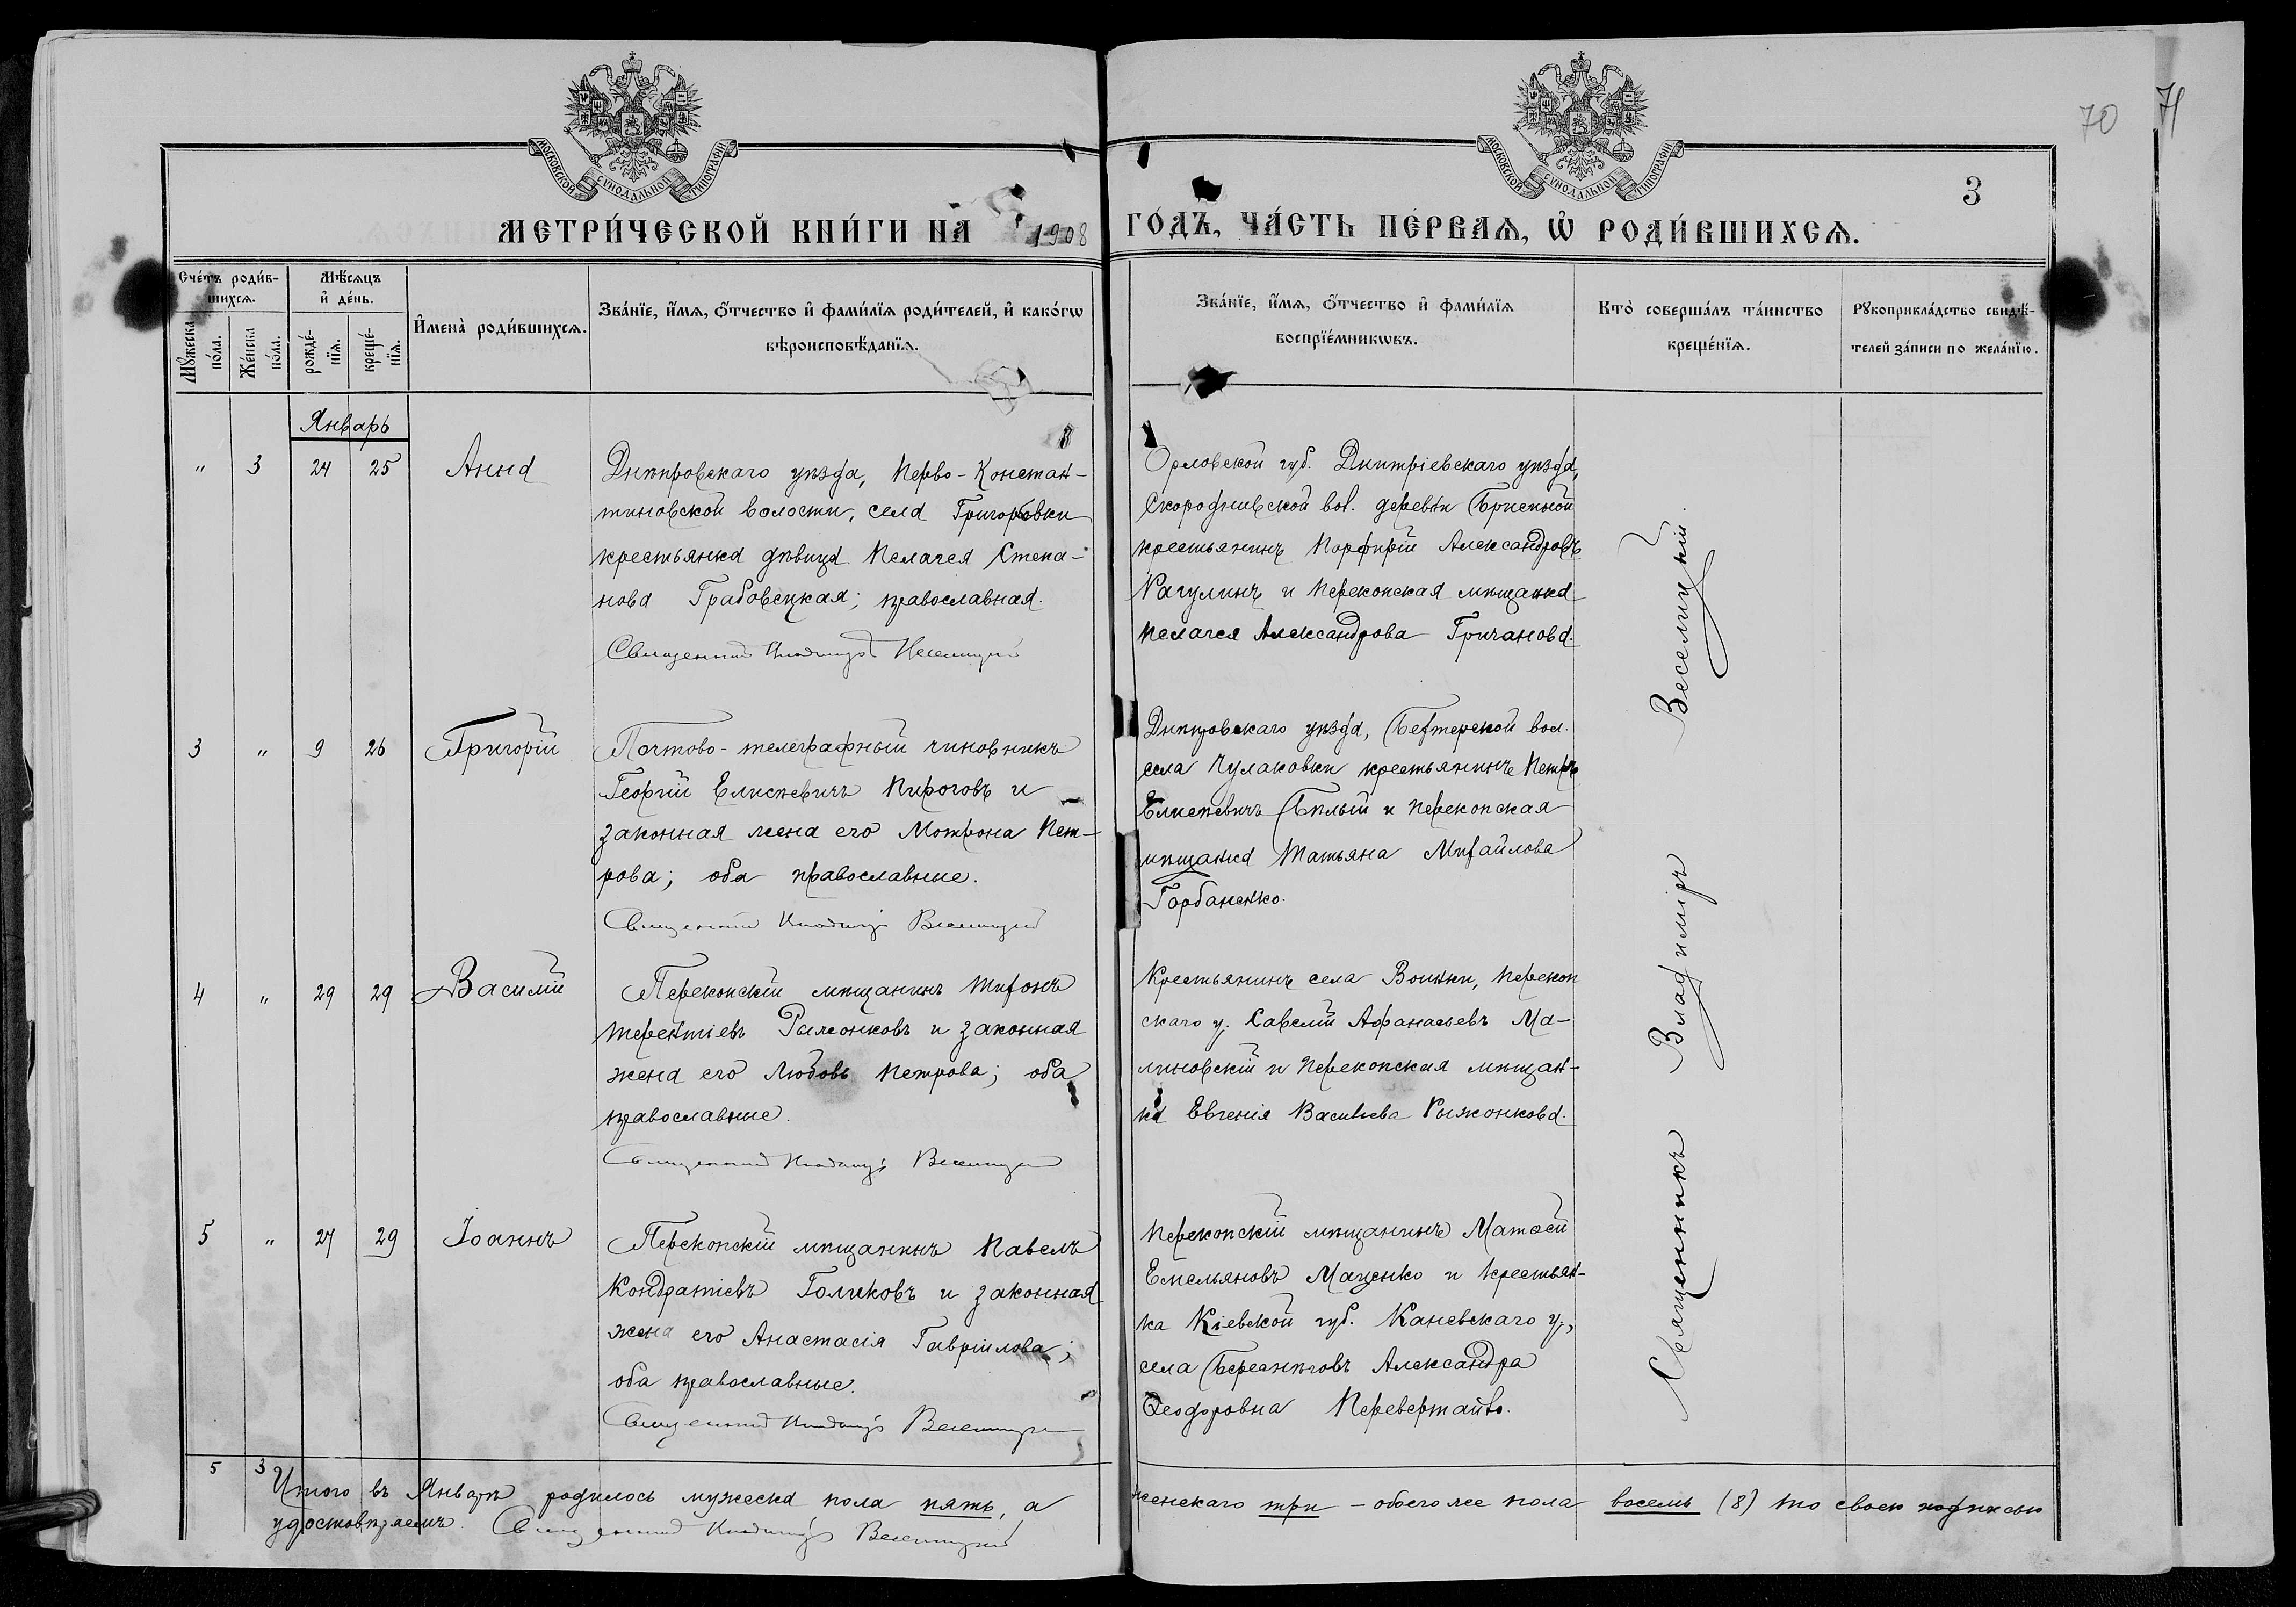 МОСКОВСКОЙ СѴНОДАЛЬНОЙ ТИПОГРАФІИ
МОСКОВСКОЙ СѴНОДАЛЬНОЙ ТИПОГРАФІИ
70
71
3
МЕТРИ́ЧЕСКОЙ КНИ́ГИ НА 1908 ГО́ДЪ, ЧА́СТЬ ПЕ́РВАѦ, Ѡ҆ РОДИ́ВШИХСѦ.
Сче́тъ роди́в-
шихсѧ.
Мѣ́сѧцъ
и҆ де́нь.
Мꙋ́жеска
по́ла.
Же́нска
по́ла.
рожде́-
нїѧ.
креще́-
нїѧ.
И҆мена̀ роди́вшихсѧ.
Зва́нїе, и҆́мѧ, ѻ҆́тчество и҆ фами́лїѧ роди́телей, и҆ како́гѡ
вѣроисповѣ́данїѧ.
Зва́нїе, и҆́мѧ, ѻ҆́тчество и҆ фами́лїѧ
воспрїе́мникѡвъ.
Кто̀ соверша́лъ та́инство
креще́нїѧ.
Рꙋкоприкла́дство свидѣ́-
телей за́писи по жела́нїю.
Январь
" 3 24 25 Анна
Днѣпровскаго уѣзда, Перво-Констан-
тиновской волости, села Григоровки
крестьянка дѣвица Пелагея Степа-
нова Грабовецкая; православная.
Священникъ Владиміръ Веселицкій
Орловской губ. Дмитріевскаго уѣзда,
вол. деревни
крестьянинъ Порфирій Александровъ
Рагулинъ и Перекопская мѣщанка
Пелагея Александрова Гричанова.
3 " 9 26 Григорій
Почтово-телеграфный чиновникъ
Георгій Елисѣевичъ Пироговъ и
законная жена его Мотрона Пет-
рова; оба православные.
Священникъ Владиміръ Веселицкій
Днѣпровскаго уѣзда, Бехтерской вол.
села Чулаковки крестьянинъ Петръ
Елисѣевичъ Бѣлый и перекопская
мѣщанка Татьяна Михайлова
Горбаненко.
4 " 29 29 Василій
Перекопскій мѣщанинъ Тифонъ
Терентіевъ Рыжонковъ и законная
жена его Любовь Петрова; оба
православные.
Священникъ Владиміръ Веселицкій
Крестьянинъ села Воинки, Перекоп
скаго у. Савелій Афанасьевъ Ма-
линовскій и Перекопская мѣщан-
ка Евгенія Васильева Рыжонкова.
5 " 27 29 Іоаннъ
Перекопскій мѣщанинъ Павелъ
Кондратіевъ Голиковъ и законная
жена его Анастасія Гавріилова;
оба православные.
Священникъ Владиміръ Веселицкій
Перекопскій мѣщанинъ Матѳей
Емельяновъ Маценко и крестьян-
ка Кіевской губ. Каневскаго у.,
села Александра
Ѳеодоровна Перевертайло.
Священникъ Владиміръ Веселицкій.
5 3
Итого въ Январѣ родилось мужеска пола пять, а женскаго три – обоего же пола восемь (8) что своею подписью
удостовѣряемъ. Священникъ Владиміръ Веселицкій